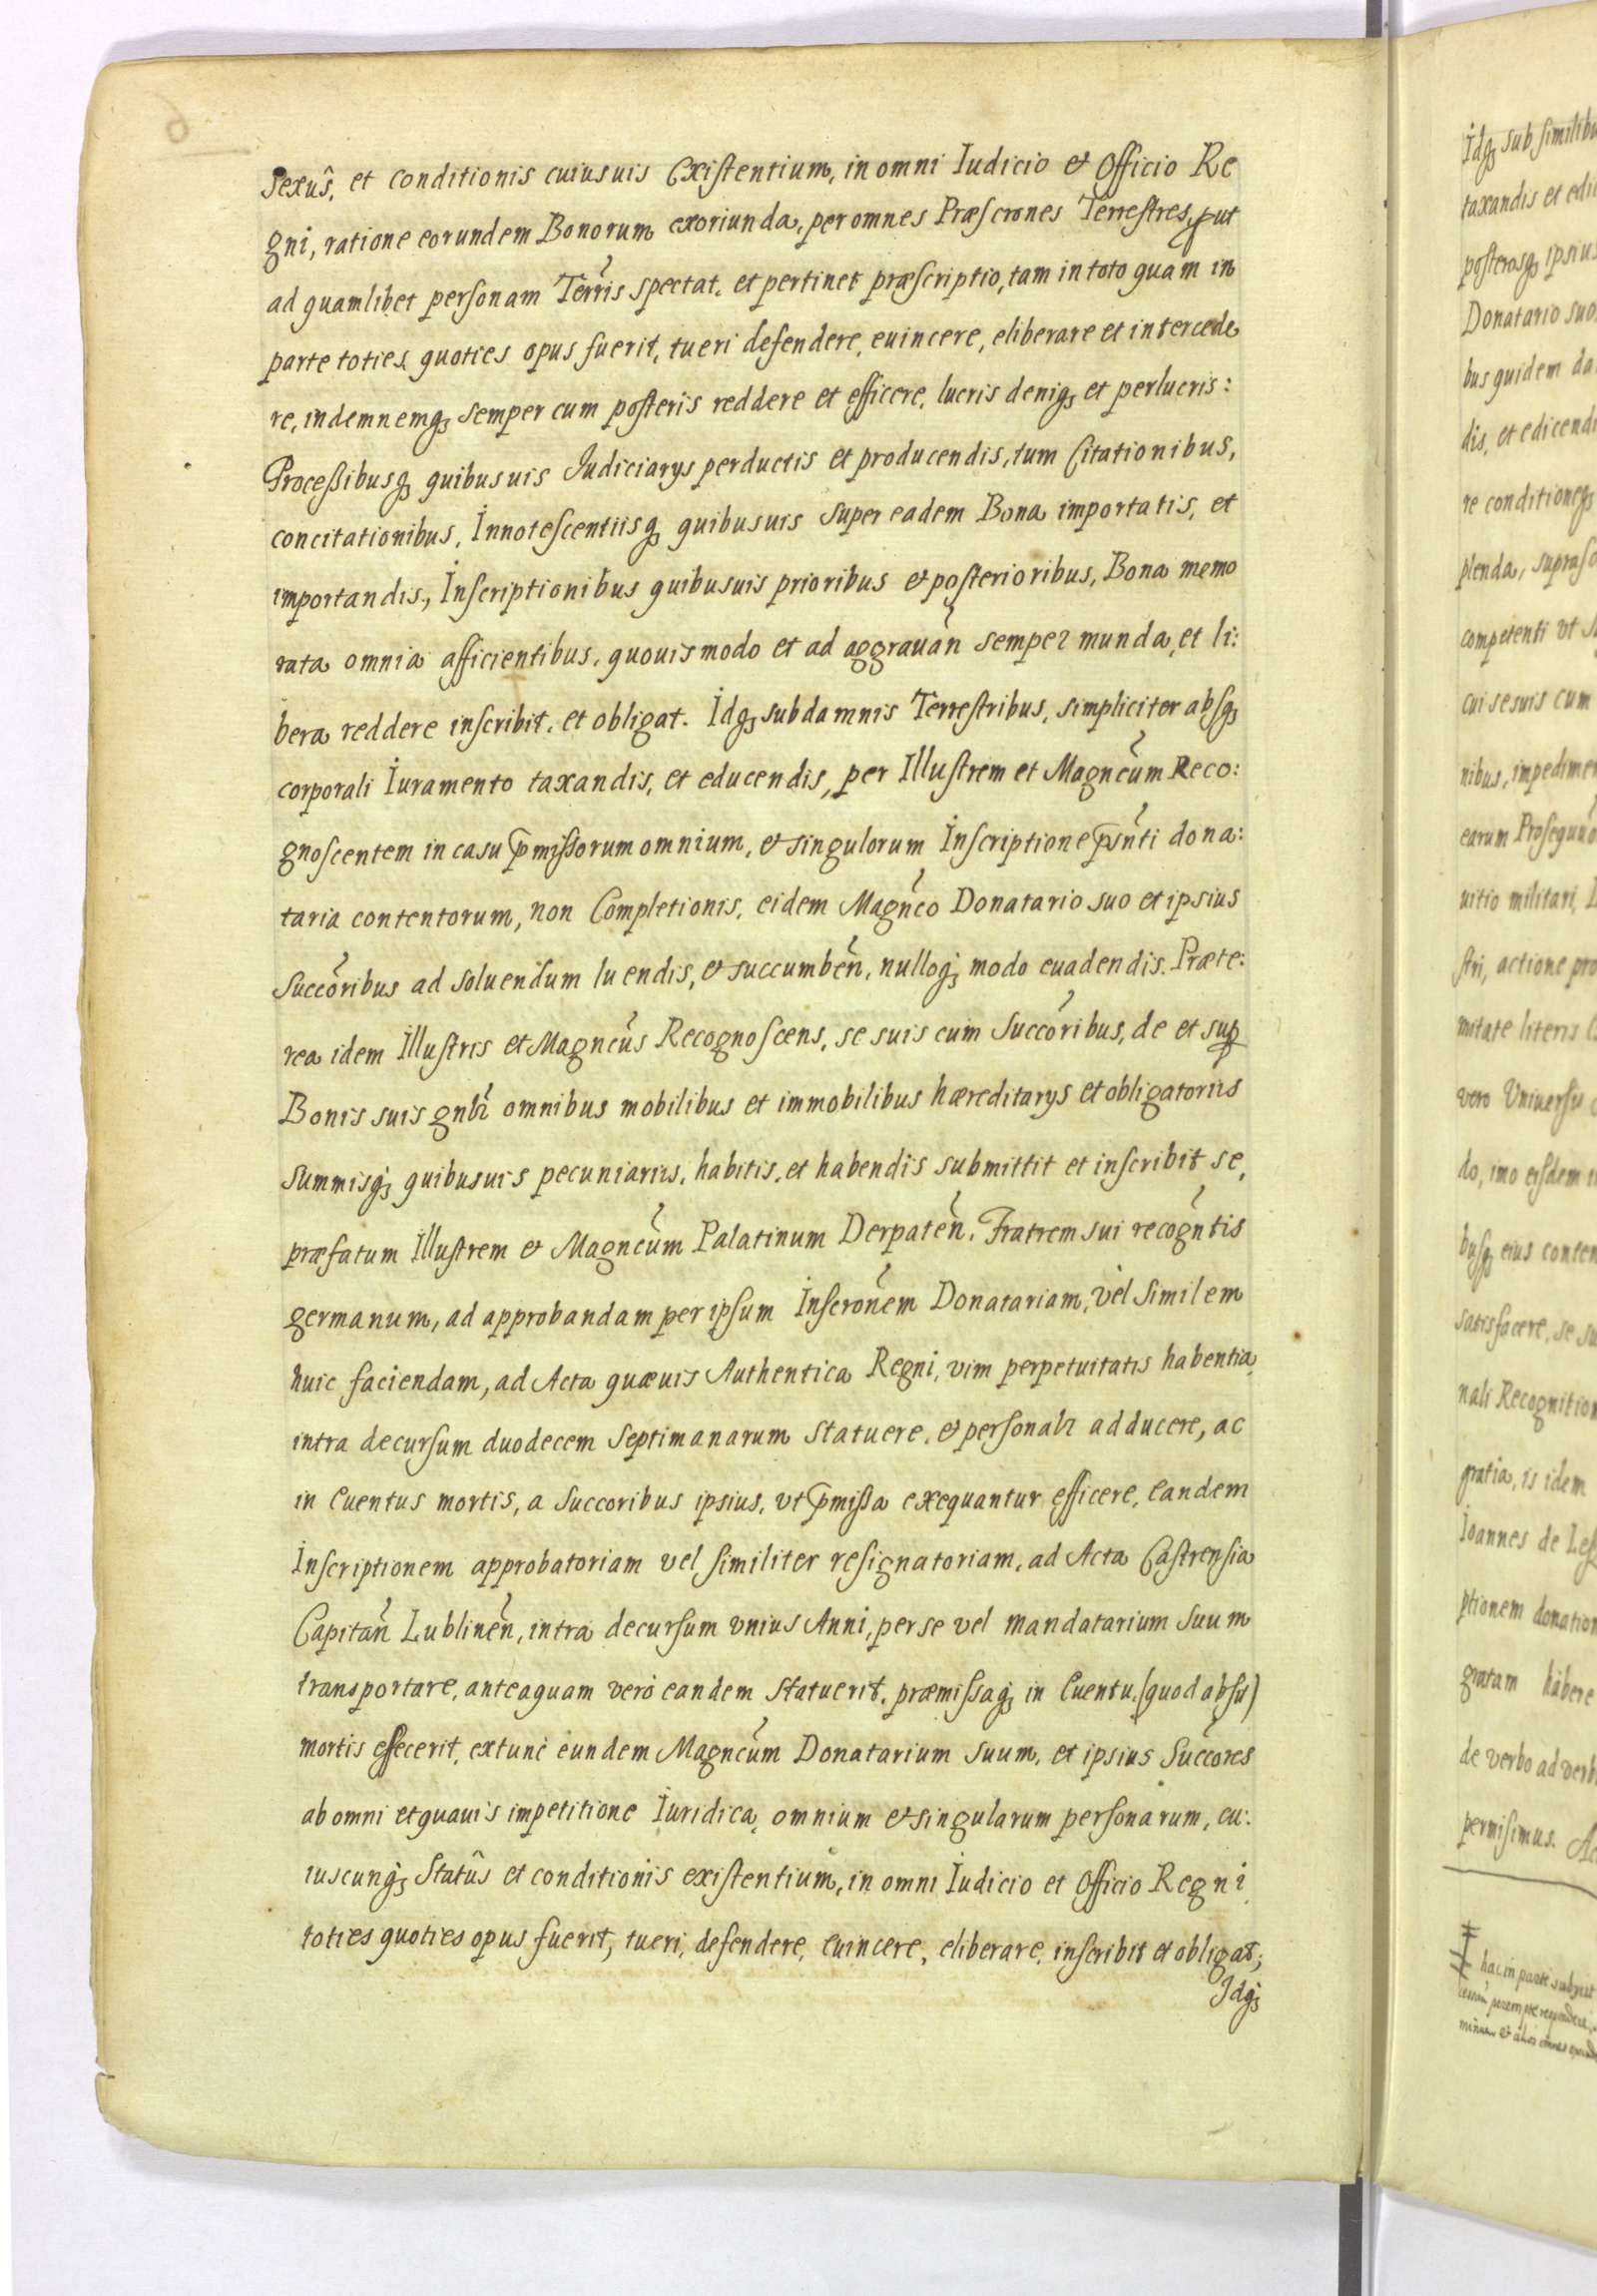 Sexûs, et conditionis cuiusuis Existentium, in omni Iudicio et Officio Re
gni, ratione eorundem Bonorum exoriunda, per omnes Præscrones Terrestres, put
ad quamlibet personam Terris spectat, et pertinet præscriptio, tam in toto quam in
parte toties quoties opus fuerit, tueri defendere, euincere, eliberare et intercede
re, indemnemq₃ semper cum posteris reddere et efficere, lucris deniq₃ et perlucris:
Processibusq₃ quibusuis Judiciarys perductis et producendis, tum Citationibus,
concitationibus, Innotescentiisq₃ quibusuis super eadem Bona importatis, et
importandis, Inscriptionibus quibusuis prioribus et posterioribus, Bona memo
rata omnia afficientibus, quouismodo et ad aggrauan̄ semper munda, et li:
bera reddere inscribit, et obligat. Idq₃ sub damnis Terrestribus, simpliciter absq₃
corporali Iuramento taxandis, et educendis, per Illustrem et Magncūm Reco:
gnoscentem in casu p̄missorum omnium, et singulorum Inscriptione p̄snti dona:
taria contentorum, non Completionis, eidem Magnc̄o Donatario suo et ipsius
Succōribus ad soluendum luendis, et succumben̄, nulloq₃ modo euadendis. Præte:
rea idem Illustris et Magncūs Recognoscens, se suis cum Succōribus, de et sup
Bonis suis gnlr omnibus mobilibus et immobilibus hæreditarys et obligatoriis
Summisq₃ quibusuis pecuniariis, habitis, et habendis submittit et inscribit se,
præfatum Illustrem et Magncūm Palatinum Derpaten̄. Fratrem sui recogn̄tis
germanum, ad approbandam per ipsum Inscrōnem Donatariam, vel similem
huic faciendam, ad Acta quæuis Authentica Regni, vim perpetuitatis habentia,
intra decursum duodecem Septimanarum statuere, et personalr adducere, ac
in Euentus mortis, a Succoribus ipsius, vt p̄missa exequantur efficere, Eandem
Inscriptionem approbatoriam vel similiter resignatoriam, ad Acta Castrensia
Capitan̄ Lublinen̄, intra decursum vnius Anni, per se vel mandatarium suum
transportare, anteaquam verò eandem statuerit, præmissaq₃ in Euentu, (quod absit)
mortis effecerit, extunc eundem Magncūm Donatarium suum, et ipsius Succōres
ab omni et quauis impetitione Iuridica, omnium et singularum personarum, cu:
iuscunq₃ Statûs et conditionis existentium, in omni Iudicio et Officio Regni
toties quoties opus fuerit, tueri, defendere, euincere, eliberare, inscribit et obligat;
Idq₃
Idq₃ sub similibu
taxandis et edi
posterosq₃ ipsius
Donatario suo
bus quidem da
dis, et edicendi
re conditioneq₃
plenda, supras
competenti vt
cui se suis cum
nibus, impedimen
earum Prosequu
uitio militari,
stri, actione pro
mitate literis
vero Vniuersis
do, imo eisdem
busq₃ eius conten
satisfacere, se su
nali Recognition
gratia, is idem
Ioannes de Les
ptionem donation
gratam habere
de verbo ad verb
permisimus. Ac
hac in parte